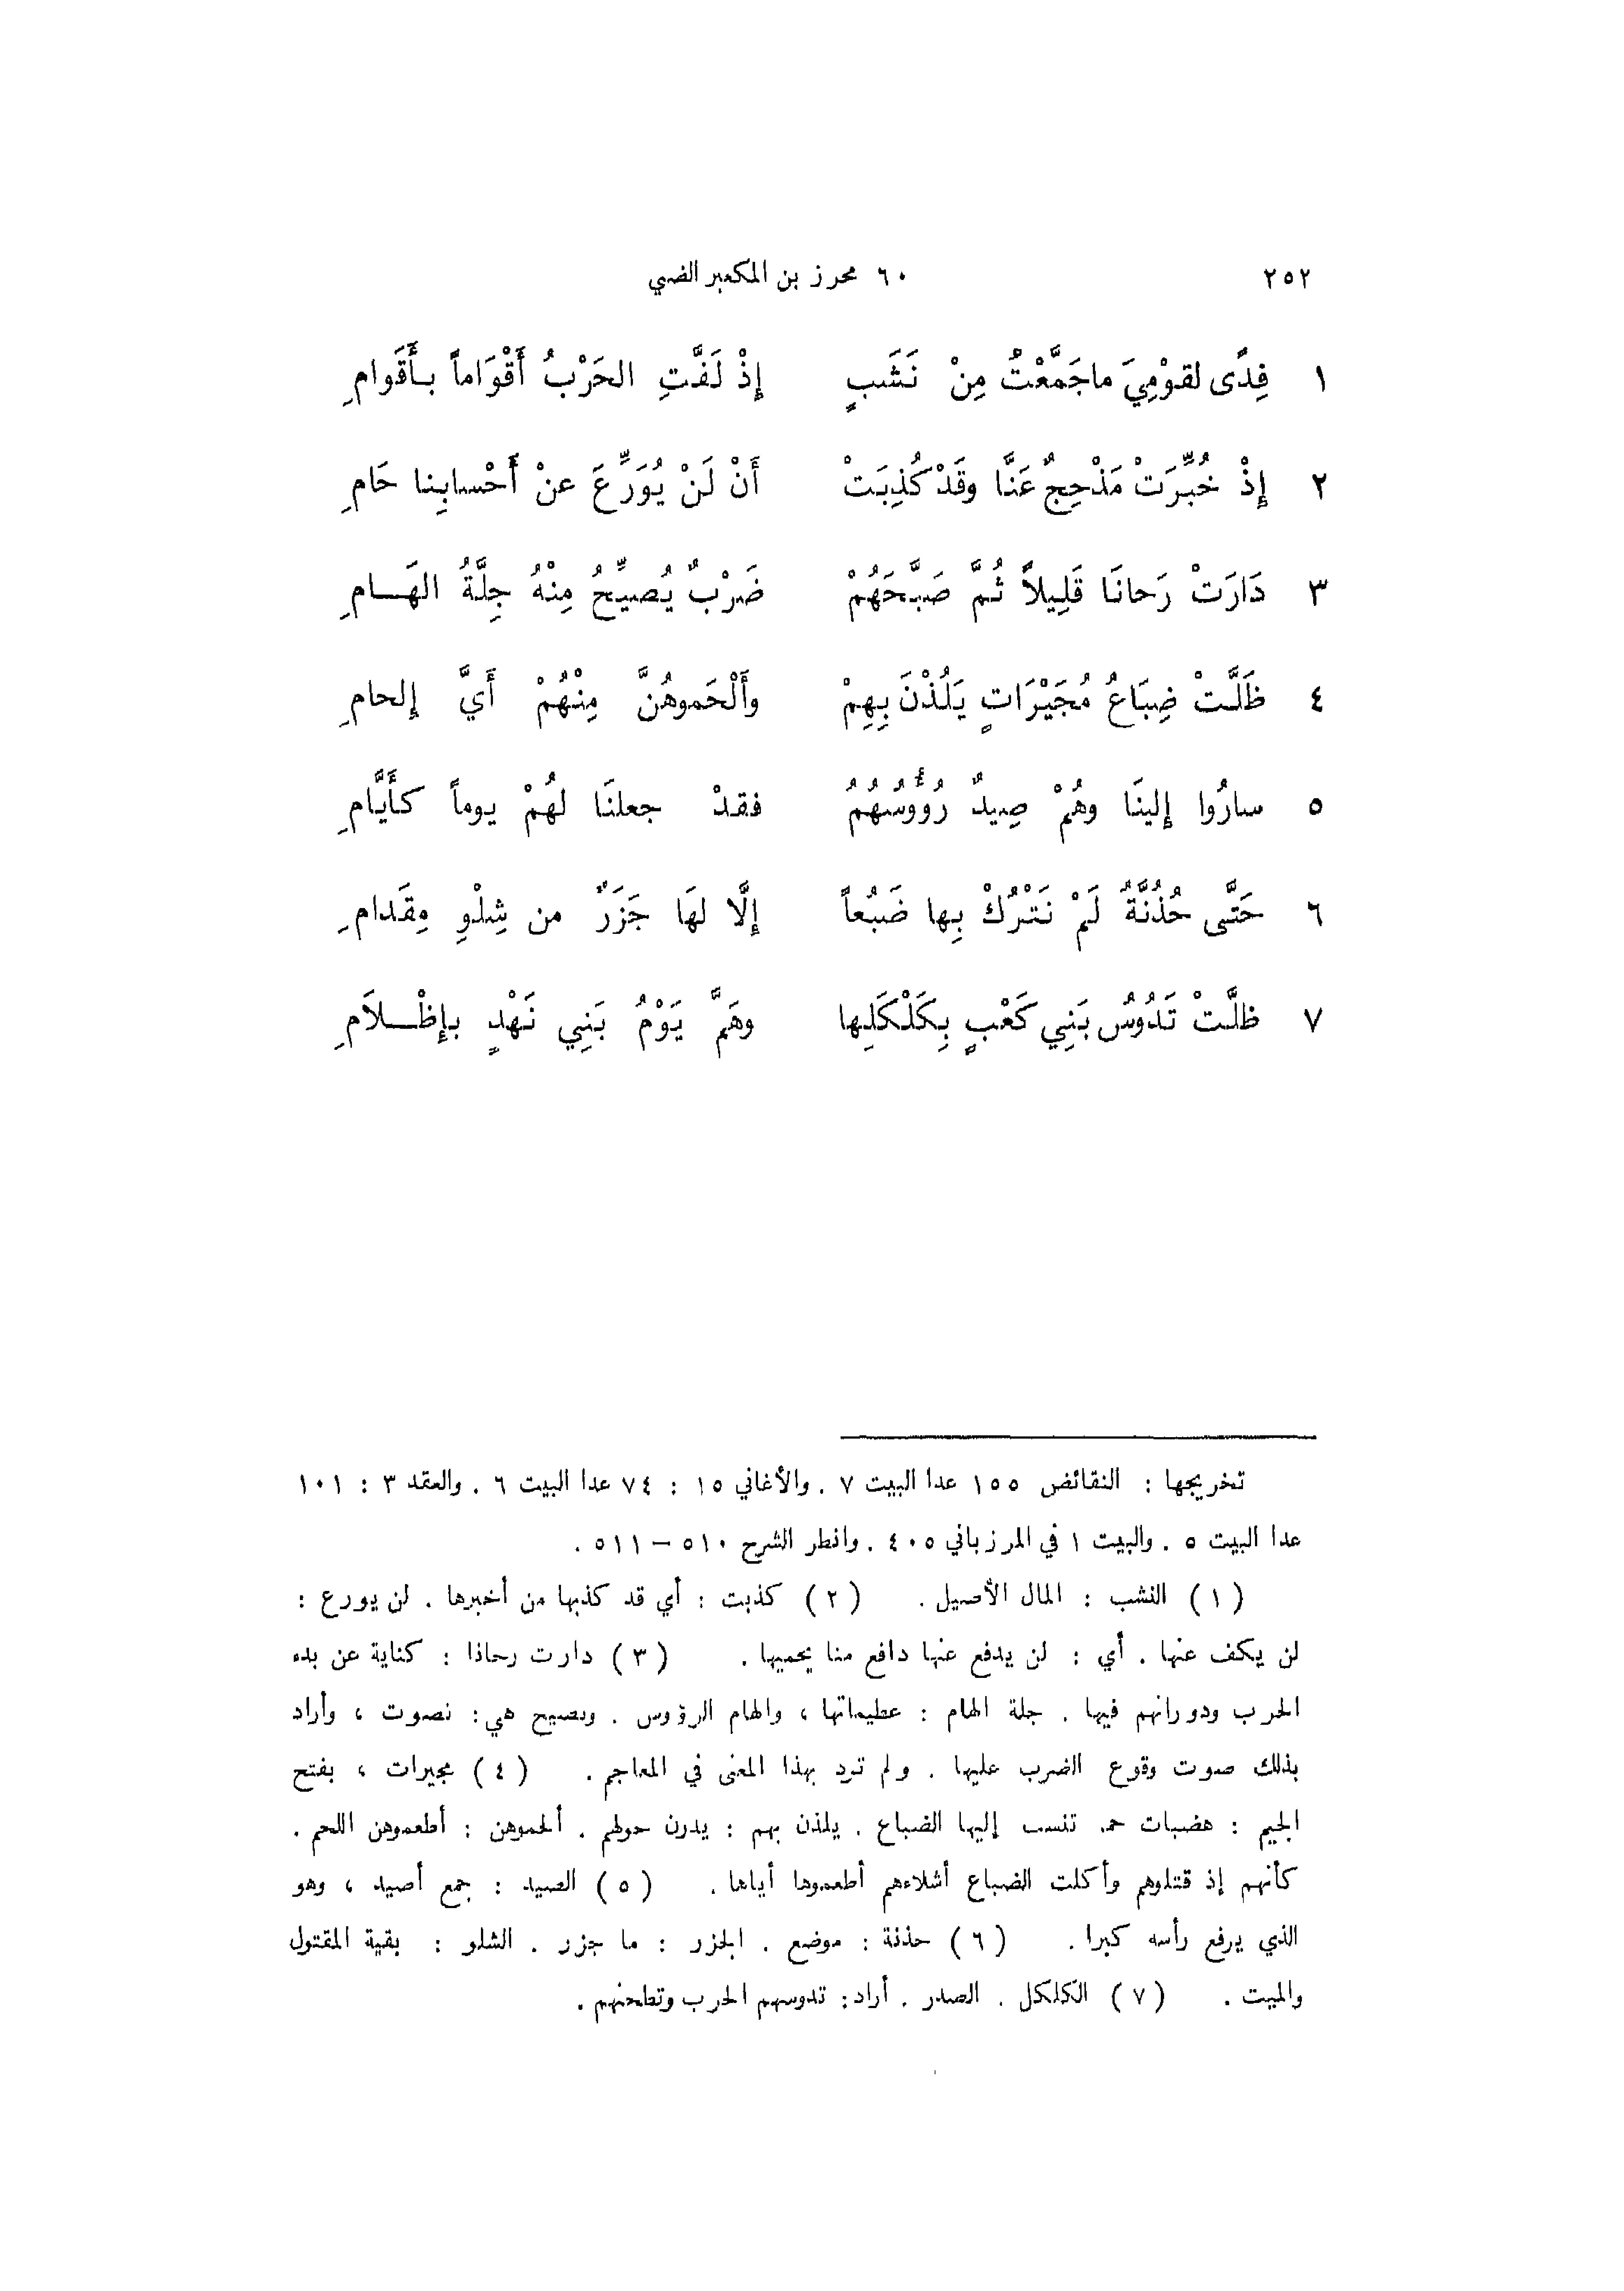 ٢٥٢ ٦٠ محرز بن المكعبر الضبي
١ فِدًى لقوْمِيَ ماجَمَّعْتُ مِنْ نَشَبٍ إِذْ لَفَّتِ الحَرْبُ أَقْوَاماً بأَقَوامِ
٢ إِذْ خُبِّرَتْ مَذْحِجٌ عَنَّا وقَدْ كُذِبَتْ أَنْ لَنْ يُوَرِّعَ عنْ أَحْسابِنا حَامِ
٣ دَارَتْ رَحانَا قَلِيلاً ثُمَّ صَبَّحَهُمْ ضَرْبٌ يُصيِّحُ مِنْهُ جِلَّةُ الهَـــامِ
٤ ظَلَّتْ ضِبَاعُ مُجَيْرَاتٍ يَلُذْنَ بِهِمْ وأَلْحَموهُنَّ مِنْهُمْ أَيَّ إلحامِ
٥ سارُوا إلينَا وهُمْ صِيدٌ رُؤُوسُهُمُ فقدْ جعلنَا لهُمْ يوماً كأَيَّامِ
٦ حَتَّى حُذُنَّةُ لَمْ نَتْرُكْ بِها ضَبُعاً إلَّا لهَا جَزَرٌ من شِلْوِ مِقَدامِ
٧ ظلَّتْ تَدُوُس بَنِي كَعْبٍ بِكَلْكَلِها وهَمَّ يَوْمُ بَنِي نَهْدٍ بإظْـــلاَمِ
تخريجها : النقائض ١٥٥ عدا البيت ٧ . والأغاني ١٥ : ٧٤ عدا البيت ٦ . والعقد ٣ : ١٠١
عدا البيت ٥ . والبيت ١ في المرزباني ٤٠٥ . وانظر الشرح ٥١٠ – ٥١١ .
( ١ ) النشب : المال الأصيل . ( ٢ ) كذبت : أي قد كذبها من أخبرها . لن يورع :
لن يكف عنها . أي : لن يدفع عنها دافع منا يحميها . ( ٣ ) دارت رحانا : كناية عن بدء
الحرب ودورانهم فيها . جلة الهام : عظيماتها ، والهام الرؤوس . وتصيح هي : تصوت ، وأراد
بذلك صوت وقوع الضرب عليها . ولم ترد بهذا المعنى في المعاجم . ( ٤ ) مجيرات ، بفتح
الجيم : هضبات حمر تنسب إليها الضباع . يلذن بهم : يدرن حولهم . ألحموهن : أطعموهن اللحم .
كأنهم إذ قتلوهم وأكلت الضباع أشلاءهم أطعموها أياها . ( ٥ ) الصيد : جمع أصيد ، وهو
الذي يرفع رأسه كبرا . ( ٦ ) حذنة : موضع . الجزر : ما جزر . الشلو : بقية المقتول
والميت . ( ٧ ) الكلكل . الصدر . أراد : تدوسهم الحرب وتطحنهم .